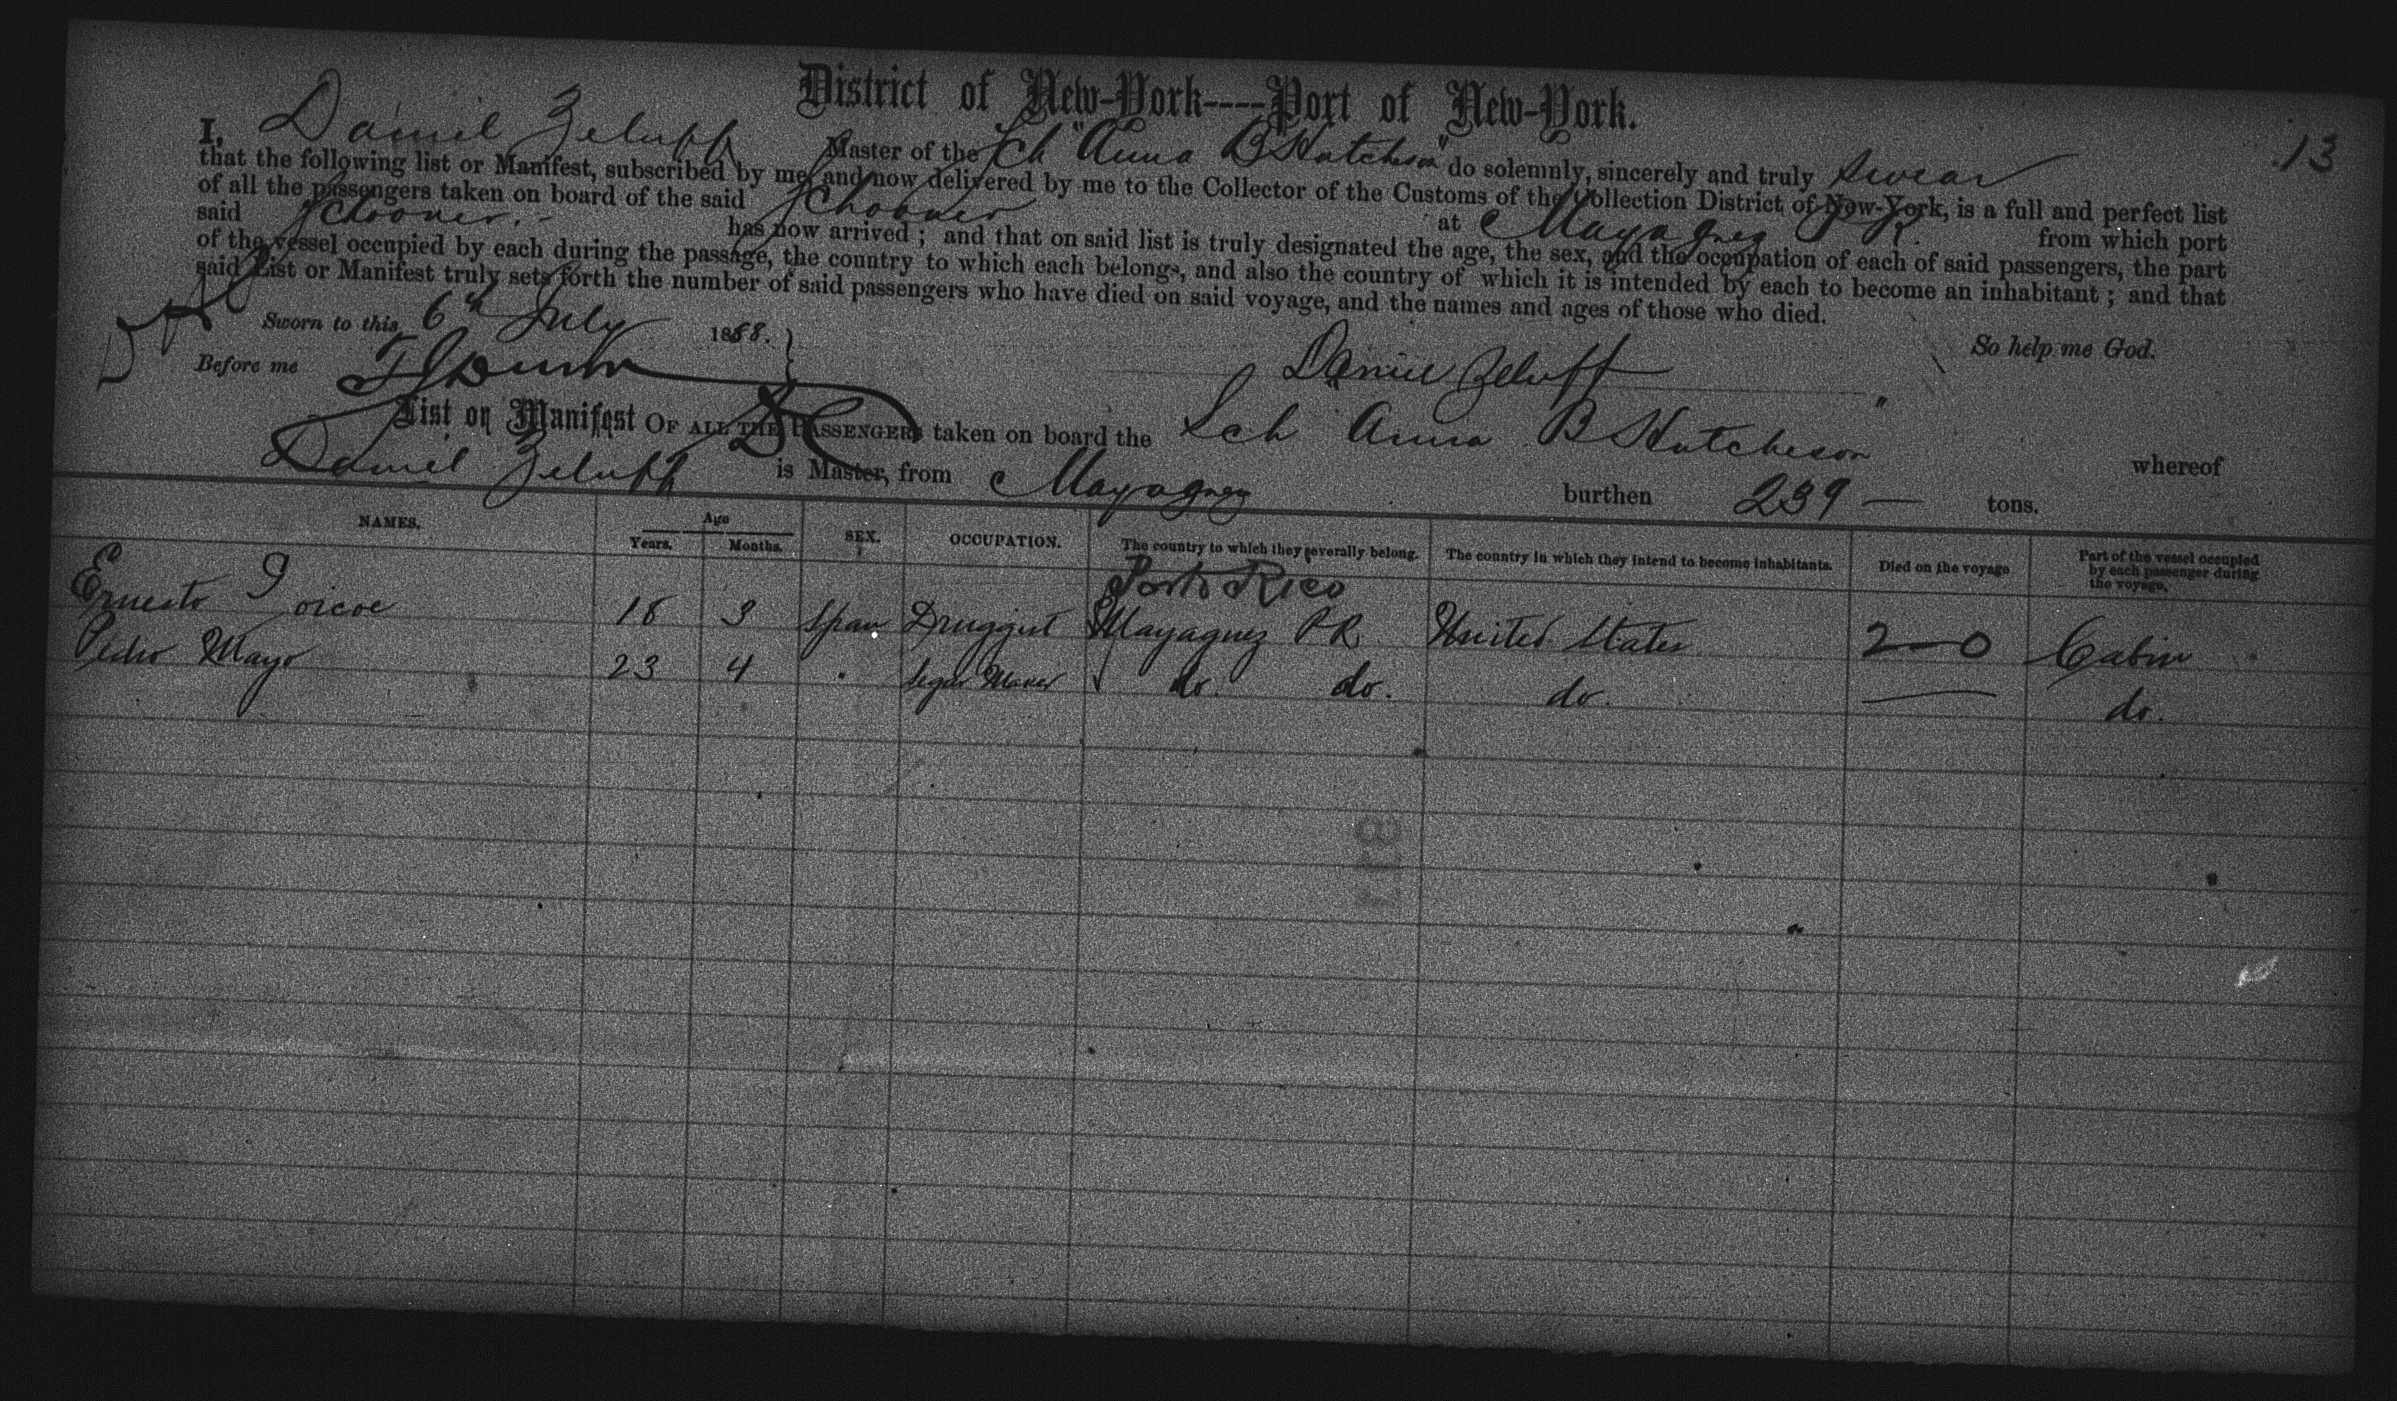 District of New-York----Port of New-York.
13
I, Daniel Zeluff Master of the Sch "Anna B Hutcheson" do solemnly, sincerely and truly swear
that the following list or Manifest, subscribed by me, and now delivered by me to the Collector of the Customs of the Collection District of New-York, is a full and perfect list
of all the passengers taken on board of the said Schooner at Mayaguez P. R. from which port
said Schooner has now arrived; and that on said list is truly designated the age, the sex, and the occupation of each of said passengers, the part
of the vessel occupied by each during the passage, the country to which each belongs, and also the country of which it is intended by each to become an inhabitant; and that
said List or Manifest truly sets forth the number of said passengers who have died on said voyage, and the names and ages of those who died.
So help me God.
Sworn to this 6th July 1888.
Before me
Daniel Zeluff
List or Manifest OF ALL THE PASSENGERS taken on board the Sch Anna B Hutcheson" whereof
Daniel Zeluff is Master, from Mayaguez burthen 239 — tons.
NAMES. Age Years. Months. SEX. OCCUPATION. The country to which they severally belong. The country in which they intend to become inhabitants. Died on the voyage Part of the vessel occupied by each passenger during the voyage.
Porto Rico
Ernesto 18 3 Span Druggist Mayaguez P R United States 2—0 Cabin
Pedro Mayo 23 4 " Segar Maker do. do. do. — do.